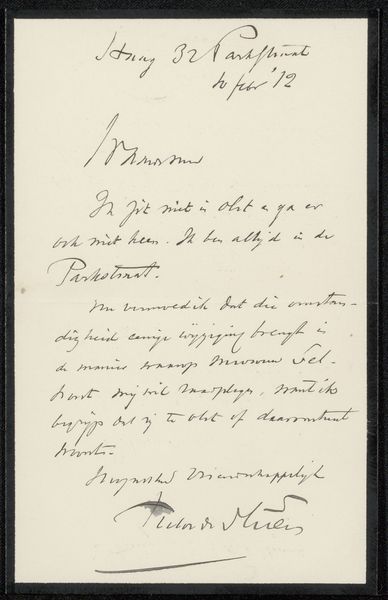 Haag 32 Parkstraat
10 febr '12
Ik zit niet in Olst en ga er
ook niet heen. Ik ben altijd in de
Parkstraat.
Nu vermoed ik dat die omstan-
digheid eenige wijziging brengt in
de manier waarop Mevrouw
mij wil raadplegen, want ik
begrijp dat zij te Olst of daaromtrent
woont.
Hoogachtend Vriendschappelijk